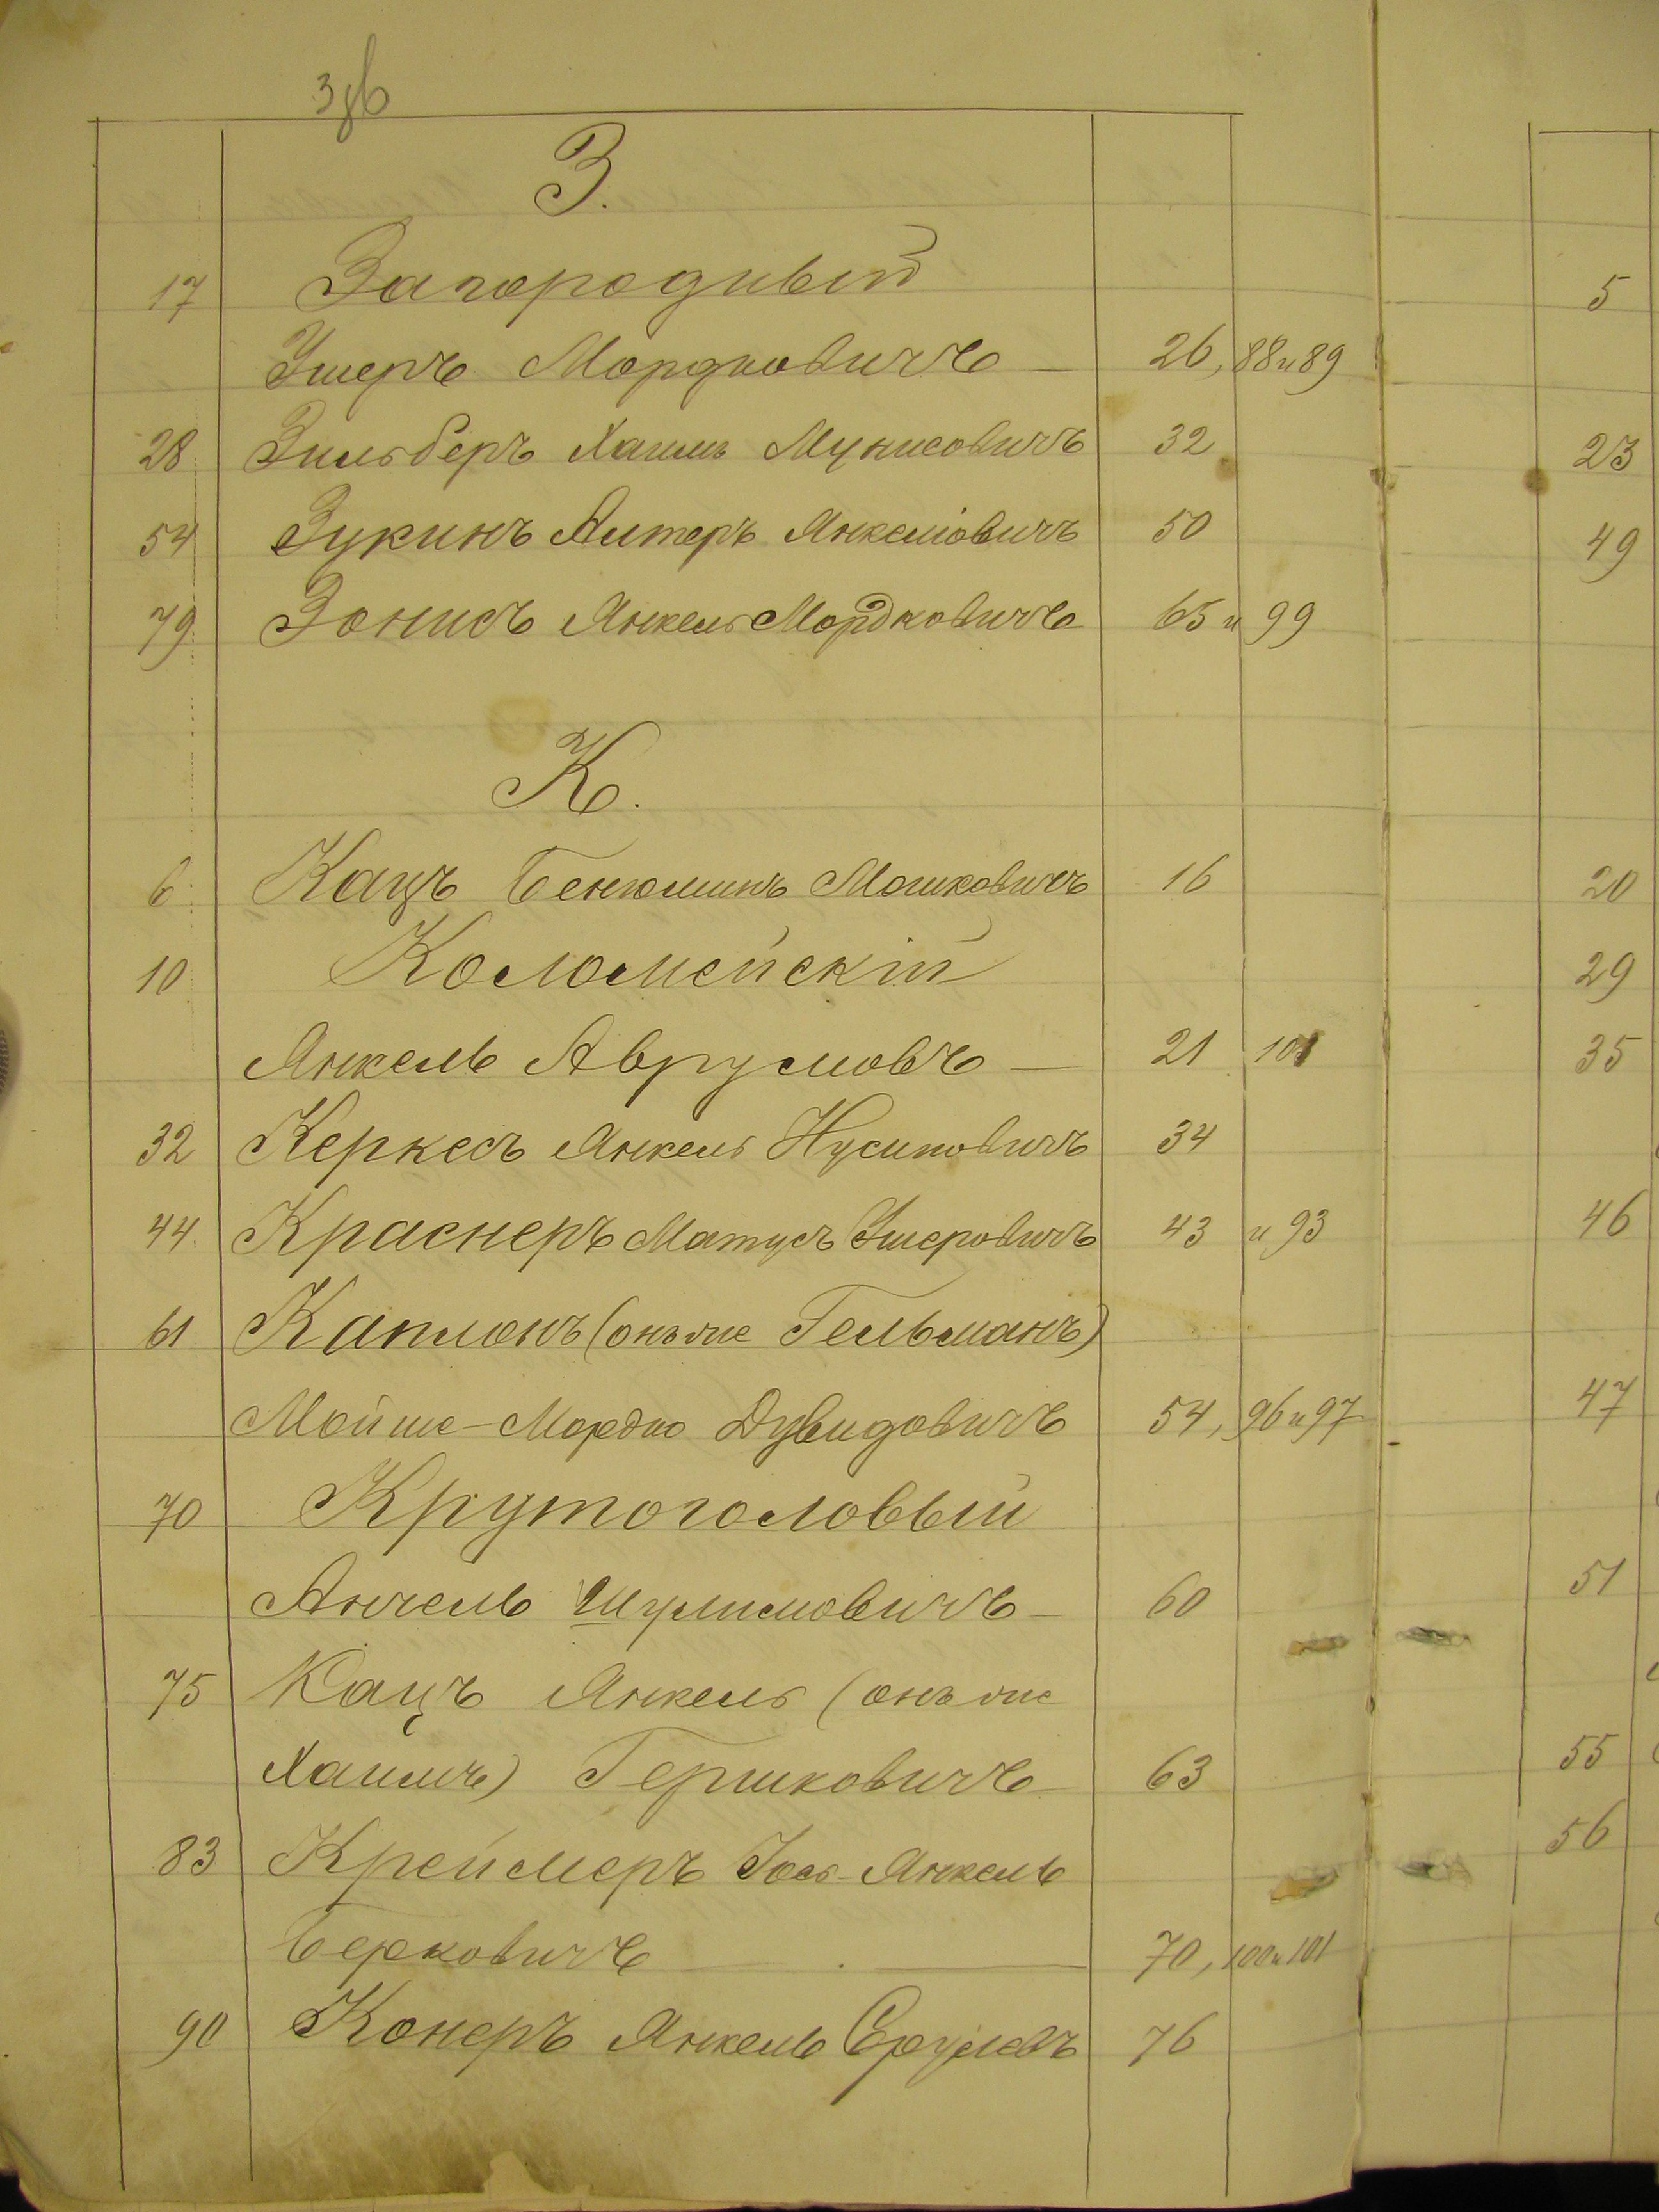 З.
17 Загородный
Ушеръ Мордковичъ — 26, 88 и 89
28 Зильберъ Хаимъ Мунисовичъ 32
54 Зукинъ Алтеръ Янкелiовичъ 50
79 Зонисъ Янкель Мордковичъ 65 и 99
К.
6 Кацъ Бенюминъ Мошковичъ 16
10 Коломейскій
Янкель Аврумовъ — 21 101
32 Керкесъ Янкель Нусиновичъ 34
44 Краснеръ Матусъ Ушеровичъ 43 и 93
61 Каплонъ (онъ же Гельманъ)
Мойше-Мордко Дувидовичъ 54, 96 и 97
70 Крутоголовый
Анчель Шулимовичъ — 60
75 Кацъ Янкель (онъ же
Хаимъ) Гершковичъ 63
83 Креймеръ Іось-Янкель
Берковичъ — 70, 100 и 101
90 Конеръ Янкель Срулевъ 76
5
23
49
20
29
35
46
47
51
55
56